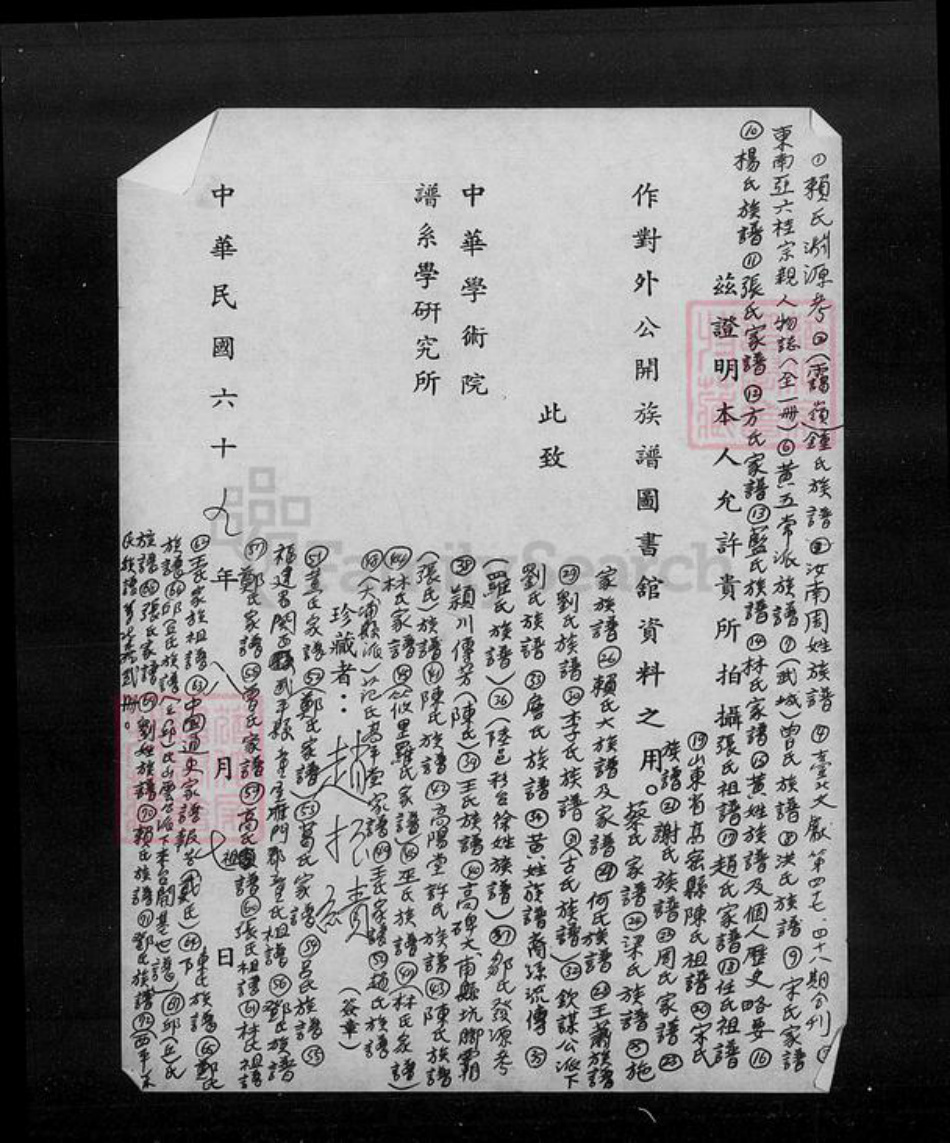 ①賴氏淵源考②(靄嶺)鍾氏族譜③汝南周姓族譜④臺北文獻第四七、四十八期合刊⑤
東南亞六桂宗親人物誌(全一冊)⑥黃五常派族譜⑦(武城)曾氏族譜⑧洪氏族譜⑨宋氏家譜
⑩楊氏族譜⑪張氏家譜⑫方氏家譜⑬藍氏族譜⑭林氏家譜⑮黃姓族譜及個人歷史略要⑯
茲證明本人允許貴所拍攝張氏祖譜⑰趙氏家譜⑱任氏祖譜
⑲山東省高密縣陳氏祖譜⑳宋氏
族譜㉑謝氏族譜㉒周氏家譜㉓
作對外公開族譜圖書舘資料之用。蔡氏家譜㉔梁氏族譜㉕施
家族譜㉖賴氏大族譜及家譜㉗何氏族譜㉘王蕭族譜
此致
㉙劉氏族譜㉚李氏族譜㉛(古氏族譜)㉜欽謀公派下
劉氏族譜㉝詹氏族譜㉞黃姓族譜裔孫流傳㉟
(羅氏族譜)㊱(陸邑彩合徐姓族譜)㊲鄒氏發源考
中華學術院
㊳潁川傳芳(陳氏)㊴王氏族譜㊵高碑大甫縣坑腳霸
譜系學研究所
(張氏)族譜㊶陳氏族譜㊷高陽堂許氏族譜㊸陳氏族譜
㊹林氏家譜㊺ 里羅氏家譜㊻巫氏族譜㊼(林氏家譜)
㊽(大埔縣派) 氏萬年堂家譜㊾王氏家譜㊿趙氏族譜
珍藏者：趙振績(簽章)
51董氏家譜52鄭氏家譜53葛氏家譜54呂氏族譜55
福建省閩西 武平縣 雁門郡童氏祖譜56鄧氏族譜
57鄭氏家譜58曾氏家譜59高氏 譜60張氏祖譜61林氏祖譜
中華民國六十九年八月七日
62王氏家族祖譜63中國通史家譜報告(戴氏)64 東氏族譜65鄭氏
族譜66邱(丘)氏族譜(丘邱)氏山雲公派下來台開基世譜67邱(丘)氏
族譜68張氏家譜69劉姓族譜70賴氏族譜71鄧氏族譜72(四平宋
氏族譜 貳冊。
FamilySearch